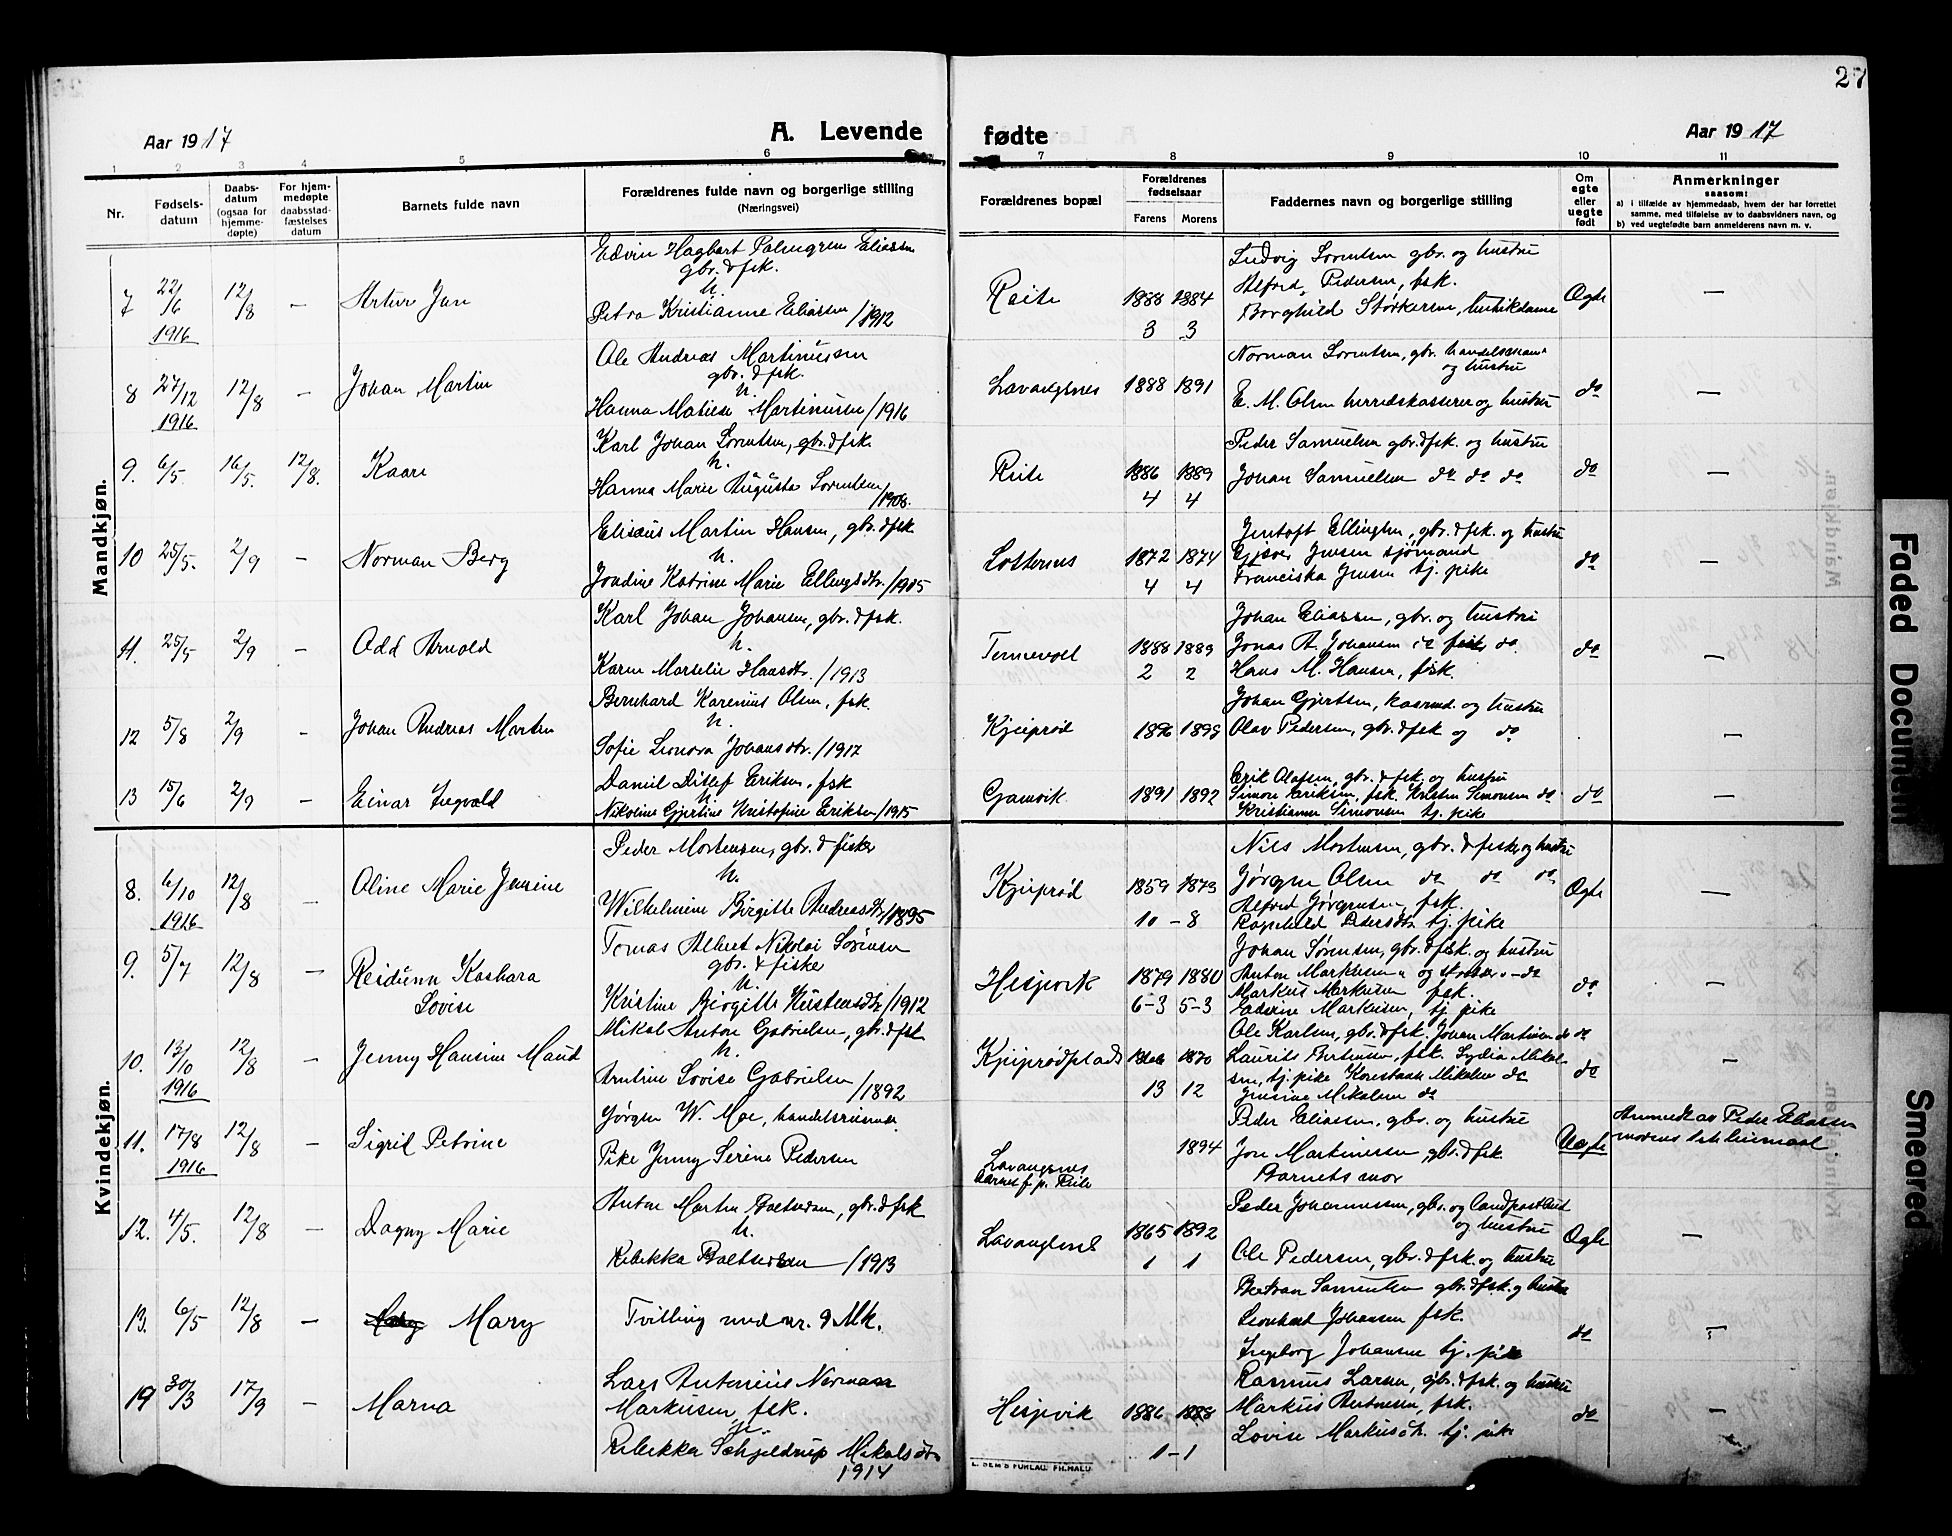 27
Aar 1917
A. Levende
fødte
Aar 1917
1 2 3 4 5 6 7 8 9 10 11
Nr.
Fødsels-
datum
Daabs-
datum
(ogsaa for
hjemme-
døpte)
For hjem-
medøpte
daabsstad-
fæstelses
datum
Barnets fulde navn
Forældrenes fulde navn og borgerlige stilling
(Næringsvei)
Forældrenes bopæl
Forældrenes
fødselsaar
Farens Morens
Faddernes navn og borgerlige stilling
Om
egte
eller
uegte
født
Anmerkninger
saasom:
a) i tilfælde av hjemmedaab, hvem der har forrettet
samme, med tilføielse av to daabsvidners navn, og
b) ved uegtefødte barn anmelderens navn m. v.
Mandkjøn.
7 22/6 1916 12/8 — Artur Jan
Edvin Hagbart Palmgren Eliassen
gbr. & fsk.
h.
Petra Kristianne Eliassen /1912
Reite 1888 1884
3 3
Ludvig Sørentsen gbr. og hustru
Alfred Pedersen, fsk.
Borghild Størkersen,
Ægte —
8 27/12 1916 12/8 — Johan Martin
Ole Andreas Martinussen
gbr. & fsk.
h.
Hanna Matiese Martinussen /1916
Lavangsnes 1888 1891
Norman Sørentsen, gbr. handelsmann
og hustru
E. M. Olsen herredskasserer og hustru
do —
9. 6/5. 16/5. 12/8. Kaare
Karl Johan Sørentsen, gbr. & fsk.
h.
Hanna Marie Augusta Sørentsen
/1908.
Reite 1886 1889
4 4
Peder Samuelsen gbr. & fsk. og hustru
Johan Samuelsen do do do
do —
10 25/5. 2/9 — Norman Berg
Elisæus Martin Hansen, gbr. & fsk
h.
Joadine Katrine Marie Ellingsdtr. /1905
1872 1874
4 4
Jentoft Ellingsen, gbr. & fsk. og hustru
Jensen sjømand
Franciska Jensen tj. pike
do —
11. 25/5 2/9 — Odd Arnold
Karl Johan Johansen, gbr. & fsk.
h.
Karen Marselie Hansdtr. /1913
Tennevoll 1888 1889
2 2
Johan Eliassen, gbr. og hustru
Jonas A. Johansen do.
Hans M. Hansen, fisk.
do —
12 5/8 2/9 - Johan Andreas Martin
Bernhard Karenius Olsen, fsk.
h.
Sofie Leonora Johansdtr. /1917
Kjeiprød 1896 1899
Johan Gjertsen, og hustru
Olav Pedersen, gbr. & fsk og do
—
13 15/6 2/9 — Einar Ingvald
Daniel Ditlef Eriksen, fsk
h.
Nikoline Gjertine Kristofine Eriksen /1915
Gamvik 1891 1892
Erik Olafsen, gbr. & fsk. og hustru
Simon Eriksen, fsk. Kristen Simonsen do
Kristianne Simonsen tj. pike
do —
Kvindekjøn.
8. 6/10 1916 12/8 — Oline Marie Jensine
Peder Mortensen, gbr. & fisker
h.
Wilhelmine Birgitte Andreasdtr /1895
Kjeiprød 1859 1873
10 - 8
Nils Mortensen, gbr. & fisker og hustru
Jørgen Olsen do do do.
Alfred Jørgensen, fsk.
Ragnhild Pedersdtr tj. pike
Ægte —
9. 5/7 12/8 — Reidunn Kashara
Lovise
Tomas Albert Nikolai Sørensen
gbr. & fisker
h.
Kristine Birgitte Kristensdtr /1912
Hesjevik 1879 1880
6-3 5-3
Johan Sørensen, gbr. & fsk. og hustru
Anton Markussen og
Markus Markussen fsk.
Markussen, tj. pike
do —
10. 13/10 1916 12/8 — Jenny Hansine Maud
Mikal Anton Gabrielsen, gbr. & fsk
h.
Arntine Lovise Gabrielsen
/1892
Kjeiprødplads 1870
13 12
Ole Karlsen, gbr. & fsk. Johan Martinsen do do
Laurits Bertinsen, fsk. Lydia Mikal-
sen, tj. pike Mikalsen do
Jensine Mikalsen do
do —
11. 17/8 1916 12/8 — Sigrid Petrine
Jørgen W. Moe, handelsreisende
Pike Jenny Serine Pedersen
Lavangsnes
Barnets f. p. Reite
1894
Peder Eliassen, gbr. og hustru
Jon Martinussen gbr. & fsk
Barnets mor
Uegte
Anmeldt av Peder Eliassen
morens
12. 4/5. 12/8 — Dagny Marie
Anton Martin Baltsersen, gbr. & fsk
h.
Rebekka Baltsersen /1913
Lavangsnes 1865 1892
1 1
Peder Johannessen, gbr. og landpostbud
og hustru
Ole Pedersen, gbr. & fsk. og hustru
Ægte —
13. 6/5 12/8 — Mary
Tvilling med nr. 9 Mk.
Samuelsen gbr. & fsk. og hustru
Leonhard Johansen fsk.
Ingeborg Johansen tj. pike
do
19 30/3 17/9 — Marna
Lars Antonius Norman
Markusen, fsk.
h.
Rebekka Schjeldrup Mikalsdtr.
1914
Hesjevik 1886 1888
1-1
Rasmus Larsen, gbr. & fsk. og hustru
Markus Bertinsen, fsk.
Lovise Markusdtr. tj. pike
do —
E. SEM'S FORLAG. FR.HALD.
Faded Document
Smeared